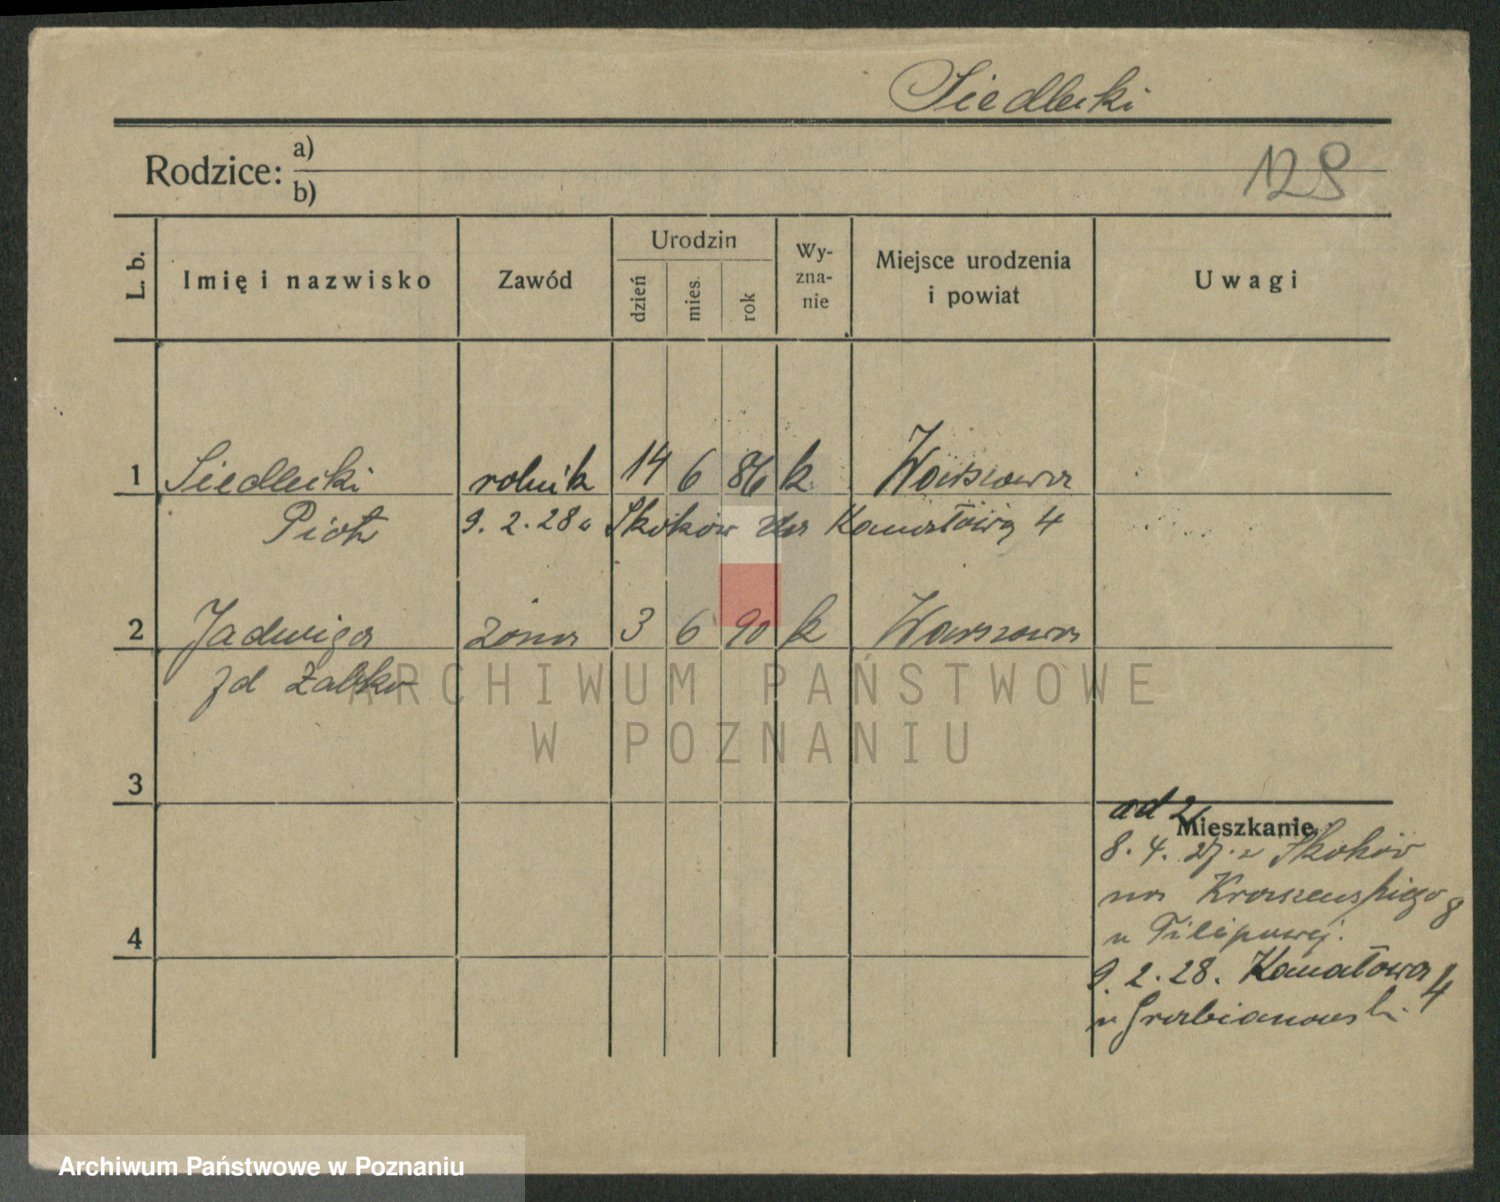 Siedlecki
Rodzice: a)
b)
128
L. b.
Imię i nazwisko
Zawód
Urodzin
dzień
mies.
rok
Wy-
zna-
nie
Miejsce urodzenia
i powiat
Uwagi
1 Siedlecki rolnik 14 6 86 k Warszawa
Piotr 9. 2. 28 Skoków Kanałowa 4
2 Jadwiga żona 3 6 90 k Warszawa
zd
3
ad 2
Mieszkanie
8. 4. 27. z Skoków
na Kraszewskiego 8
u Filipowej.
4
9. 2. 28. Kanałowa 4
u Grabianowski.
ARCHIWUM PAŃSTWOWE
W POZNANIU
Archiwum Państwowe w Poznaniu